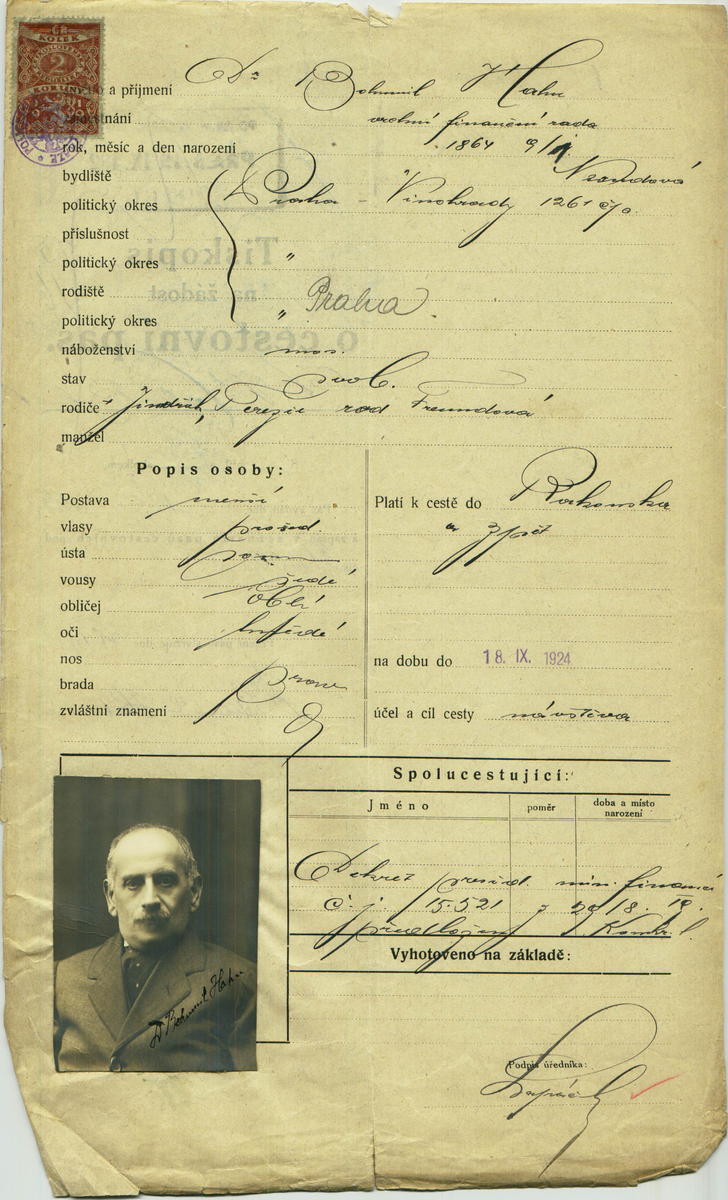 KOLEK
2
KORUNY
a příjmení Dr Bohumil Hahn
zaměstnání vrchní finanční rada
rok, měsíc a den narození 1864 9/1
bydliště
politický okres Praha - Vinohrady 1261 čp.
příslušnost
politický okres "
rodiště
politický okres " Praha
náboženství mos.
stav svob.
rodiče Jindřich, Terezie rod Freundová
manžel
Popis osoby:
Postava menší
vlasy prošed.
ústa
vousy šedé
obličej oblý
oči hnědé
nos
brada
zvláštní znamení
Platí k cestě do Rakouska
a zpět
na dobu do 18. IX. 1924
účel a cíl cesty návštěva
Spolucestující:
Jméno poměr doba a místo narození
Dekret presid. min. financí
č. j. 15.521 z 29/8. 19.
předložen
Vyhotoveno na základě:
Dr Bohumil Hahn
Podpis úředníka: